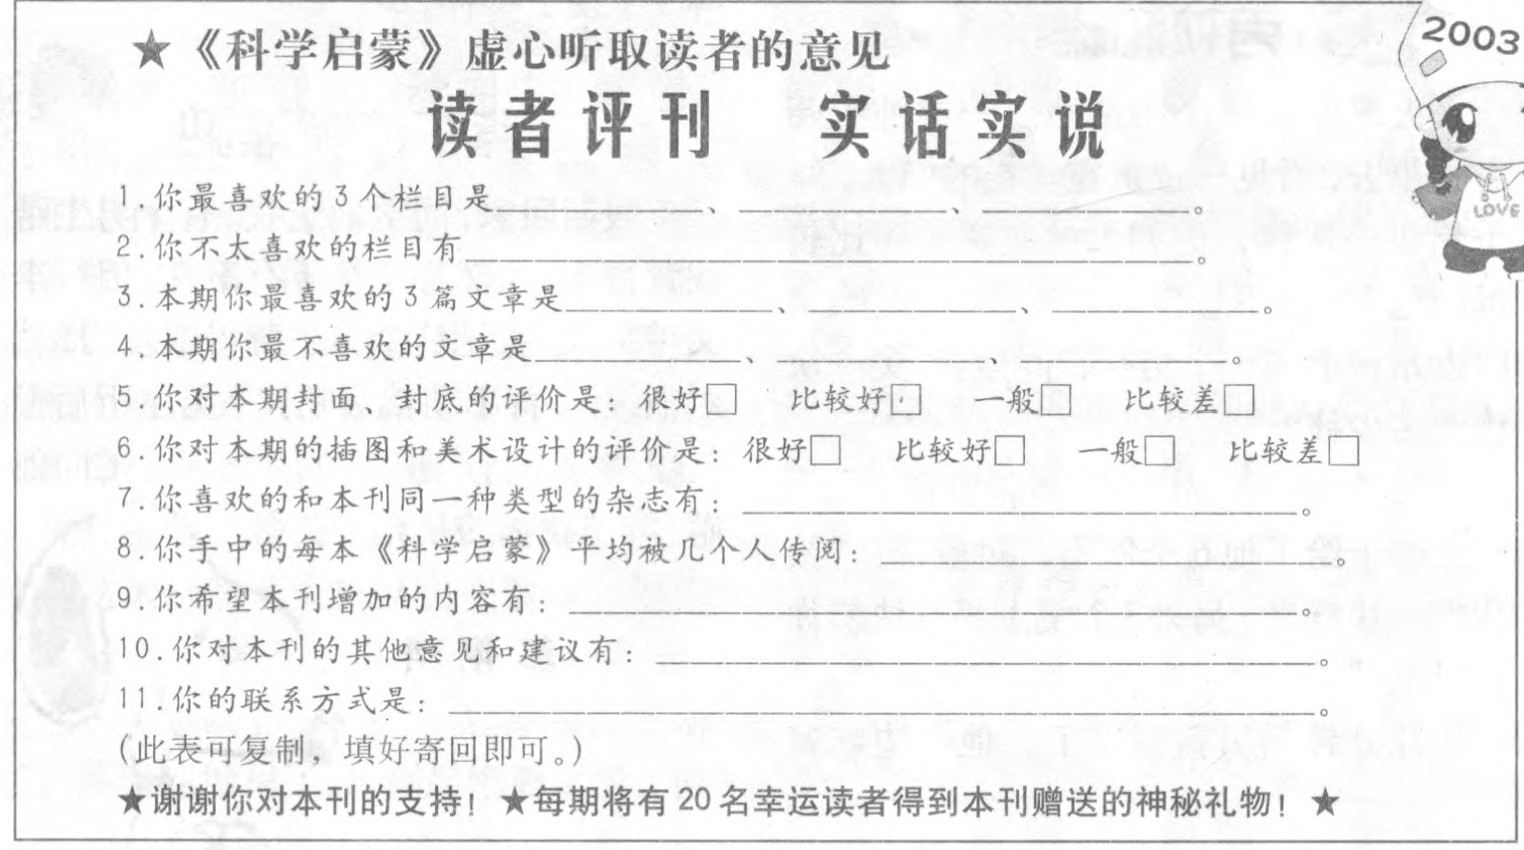 ★《科学启蒙》虚心听取读者的意见
2003
读者评刊 实话实说
LOVE
1.你最喜欢的3个栏目是____________、____________、____________。
2.你不太喜欢的栏目有____________。
3.本期你最喜欢的3篇文章是____________、____________、____________。
4.本期你最不喜欢的文章是____________、____________、____________。
5.你对本期封面、封底的评价是：很好□ 比较好□ 一般□ 比较差□
6.你对本期的插图和美术设计的评价是：很好□ 比较好□ 一般□ 比较差□
7.你喜欢的和本刊同一种类型的杂志有：____________。
8.你手中的每本《科学启蒙》平均被几个人传阅：____________。
9.你希望本刊增加的内容有：____________。
10.你对本刊的其他意见和建议有：____________。
11.你的联系方式是：____________。
(此表可复制，填好寄回即可。)
★谢谢你对本刊的支持！★每期将有20名幸运读者得到本刊赠送的神秘礼物！★